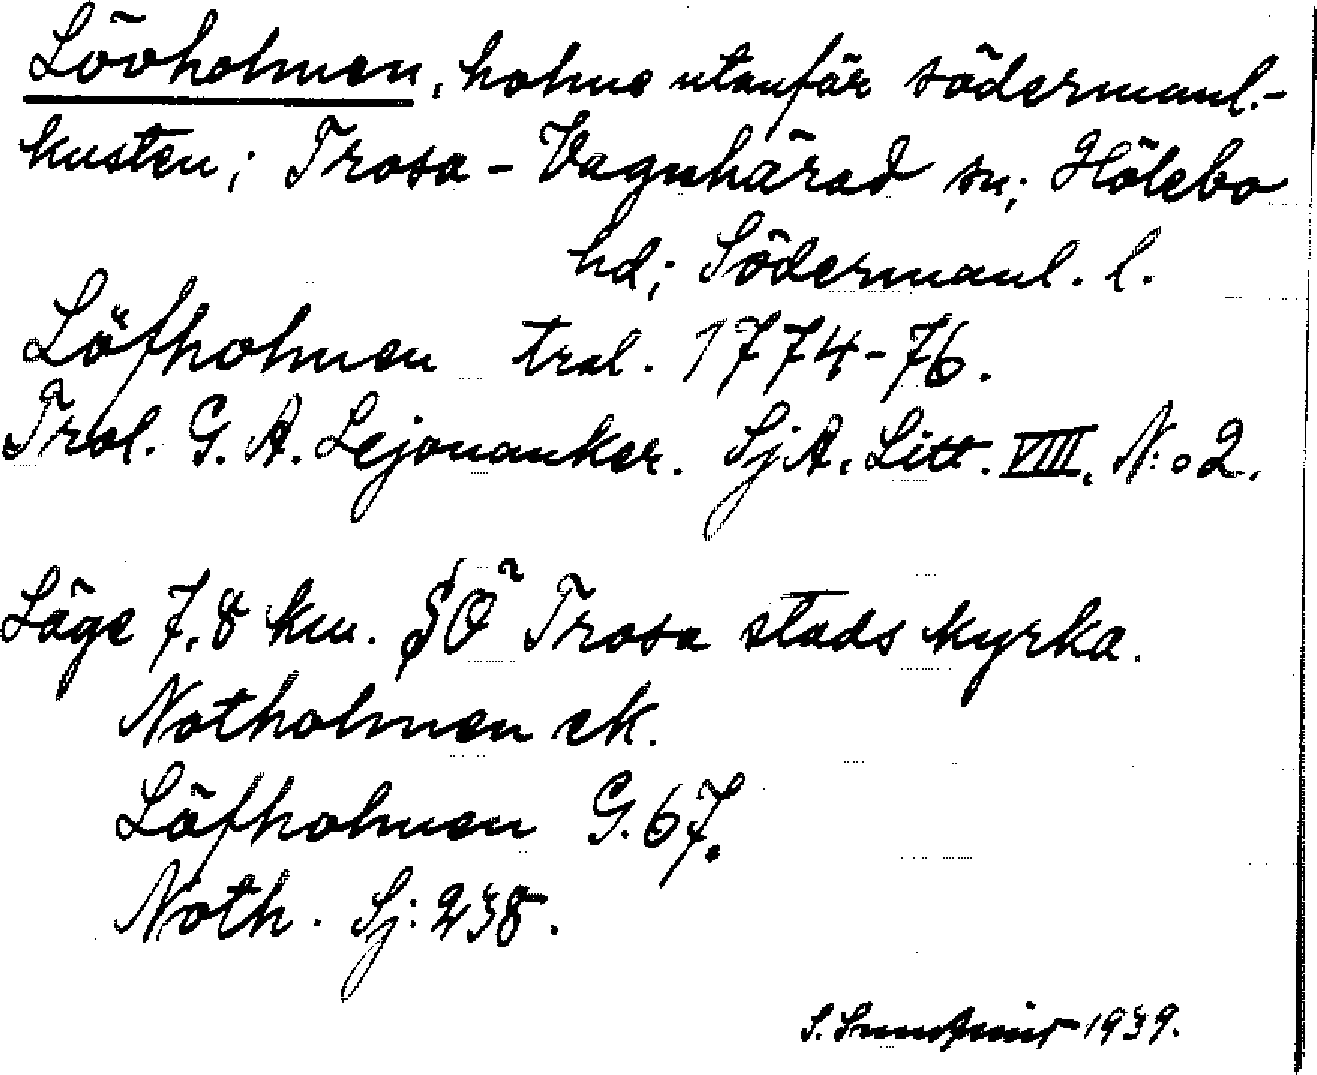 Lövholmen, holme utanför södermanl.-
kusten; Trosa-Vagnhärad sn; Hölebo
hd; Södermanl. l.
Löfholmen tral. 1774-76.
Tral. G. A. Lejonanker. SjA. Litt. VIII. N:o 2.
Läge 7,8 km. SÖ Trosa stads kyrka.
Notholmen ek.
Löfholmen G. 67.
Noth. Sj: 238.
S. 1939.